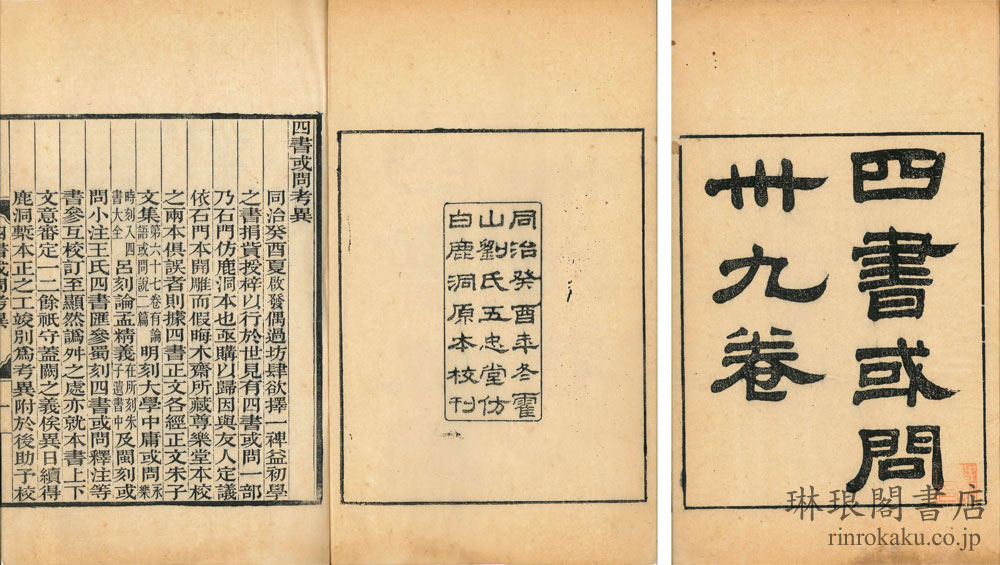 四書或問
卅九卷
同治癸酉年冬霍
山劉氏五忠堂仿
白鹿洞原本校刊
四書或問考異
同治癸酉夏啟發偶過坊肆欲擇一裨益初學
之書捐貲授梓以行於世見有四書或問一部
乃石門仿鹿洞本也亟購以歸因與友人定議
依石門本開雕而假晦木齋所藏尊樂堂本校
之兩本俱誤者則據四書正文各經正文朱子
文集第六十七卷有論語或問説二篇明刻大學中庸或問永樂
時刻入四書大全呂刻論孟精義在所刻朱子遺書中及閩刻或
問小注王氏四書匯參蜀刻四書或問釋注等
書參互校訂至顯然譌舛之處亦就本書上下
文意審定一二餘祇守蓋闕之義俟異日續得
鹿洞槧本正之工竣別爲考異附於後助予校
四書或問考異
一
琳琅閣書店
rinrokaku.co.jp